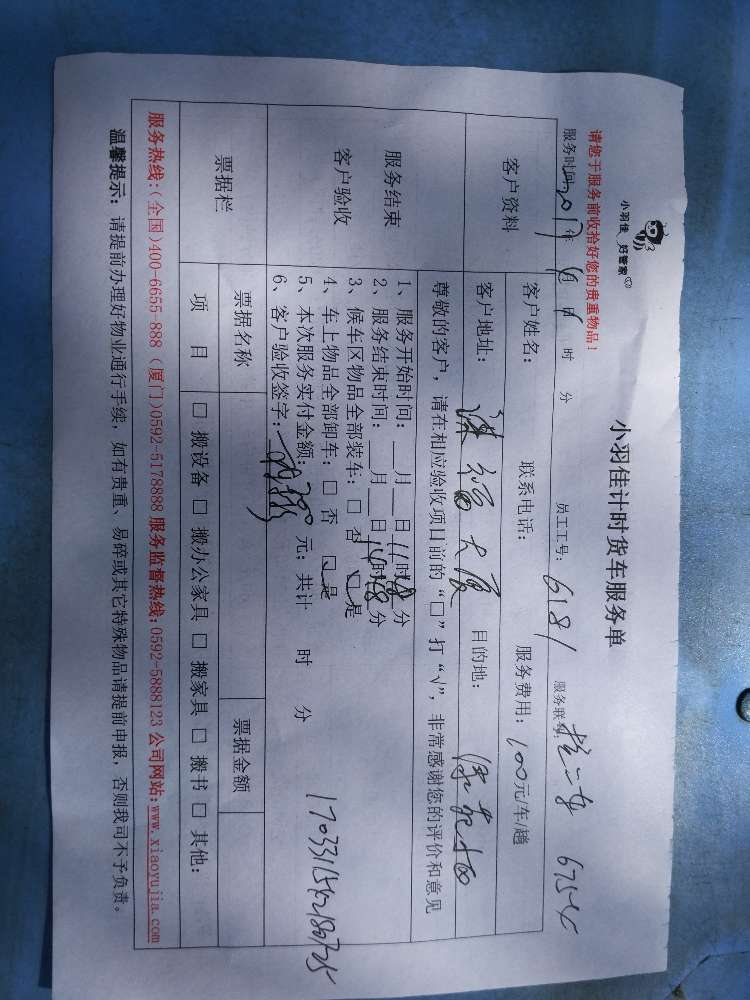 小羽佳 好管家
小羽佳计时货车服务单
请您于服务前收拾好您的贵重物品!
服务时间: 2017年 月 日 时 分 员工工号: 6181 服务联系:
客户资料
客户姓名: 联系电话: 服务费用: 100元/车/趟
客户地址: 目的地:
服务结束
客户验收
尊敬的客户, 请在相应验收项目前的“□”打“√”, 非常感谢您的评价和意见
1、服务开始时间: 月 日 11时 分
2、服务结束时间: 月 日 14时 分
3、候车区物品全部装车: □ 否 □ 是
4、车上物品全部卸车: □ 否 □ 是
5、本次服务实付金额: 元; 共计 时 分
6、客户验收签字:
票据栏
票据名称 票据金额
项 目 □ 搬设备 □ 搬办公家具 □ 搬家具 □ 搬书 □ 其他:
服务热线:(全国)400-6655-888 (厦门)0592-5178888 服务监督热线:0592-5888123 公司网站:www.xiaoyujia.com
温馨提示: 请提前办理好物业通行手续, 如有贵重、易碎或其它特殊物品请提前申报, 否则我司不予负责。